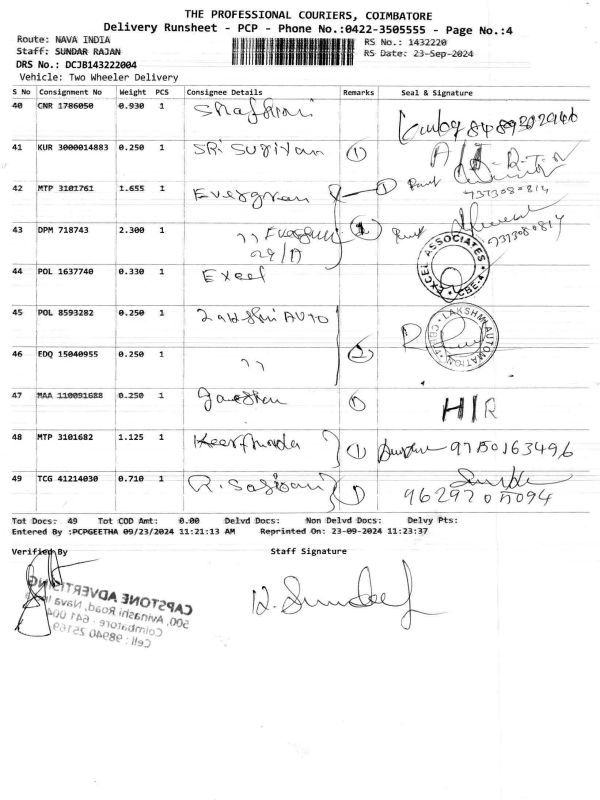 THE PROFESSIONAL COURIERS, COIMBATORE
Delivery Runsheet - PCP - Phone No.:0422-3505555 - Page No.:4
Route: NAVA INDIA
RS No.: 1432220
Staff: SUNDAR RAJAN
RS Date: 23-Sep-2024
DRS No.: DCJB143222004
Vehicle: Two Wheeler Delivery
S No Consignment No Weight PCS Consignee Details Remarks Seal & Signature
40 CNR 1786050 0.930 1
41 KUR 3000014883 0.250 1 SRi SURiyan 1
42 MTP 3101761 1.655 1 Evergreen 1
7373080814
43 DPM 718743 2.300 1 ,, Evergreen
29/A
7373080814
44 POL 1637740 0.330 1 Excel
EXCEL ASSOCIATES CBE-4
45 POL 8593282 0.250 1 Lakshmi AUTO
LAKSHMI AUTOMATION
46 EDQ 15040955 0.250 1 ,, 2
47 MAA 110091688 0.250 1 1 H/R
48 MTP 3101682 1.125 1 1 9715016349６
49 TCG 41214030 0.710 1 1
9629720５094
Tot Docs: 49 Tot COD Amt: 0.00 Delvd Docs: Non Delvd Docs: Delvy Pts:
Entered By :PCPGEETHA 09/23/2024 11:21:13 AM Reprinted On: 23-09-2024 11:23:37
Verified By Staff Signature
CAPSTONE ADVERTISING
500, Avinashi Road, Nava India
Coimbatore - 641 004
Cell : 98940 25169